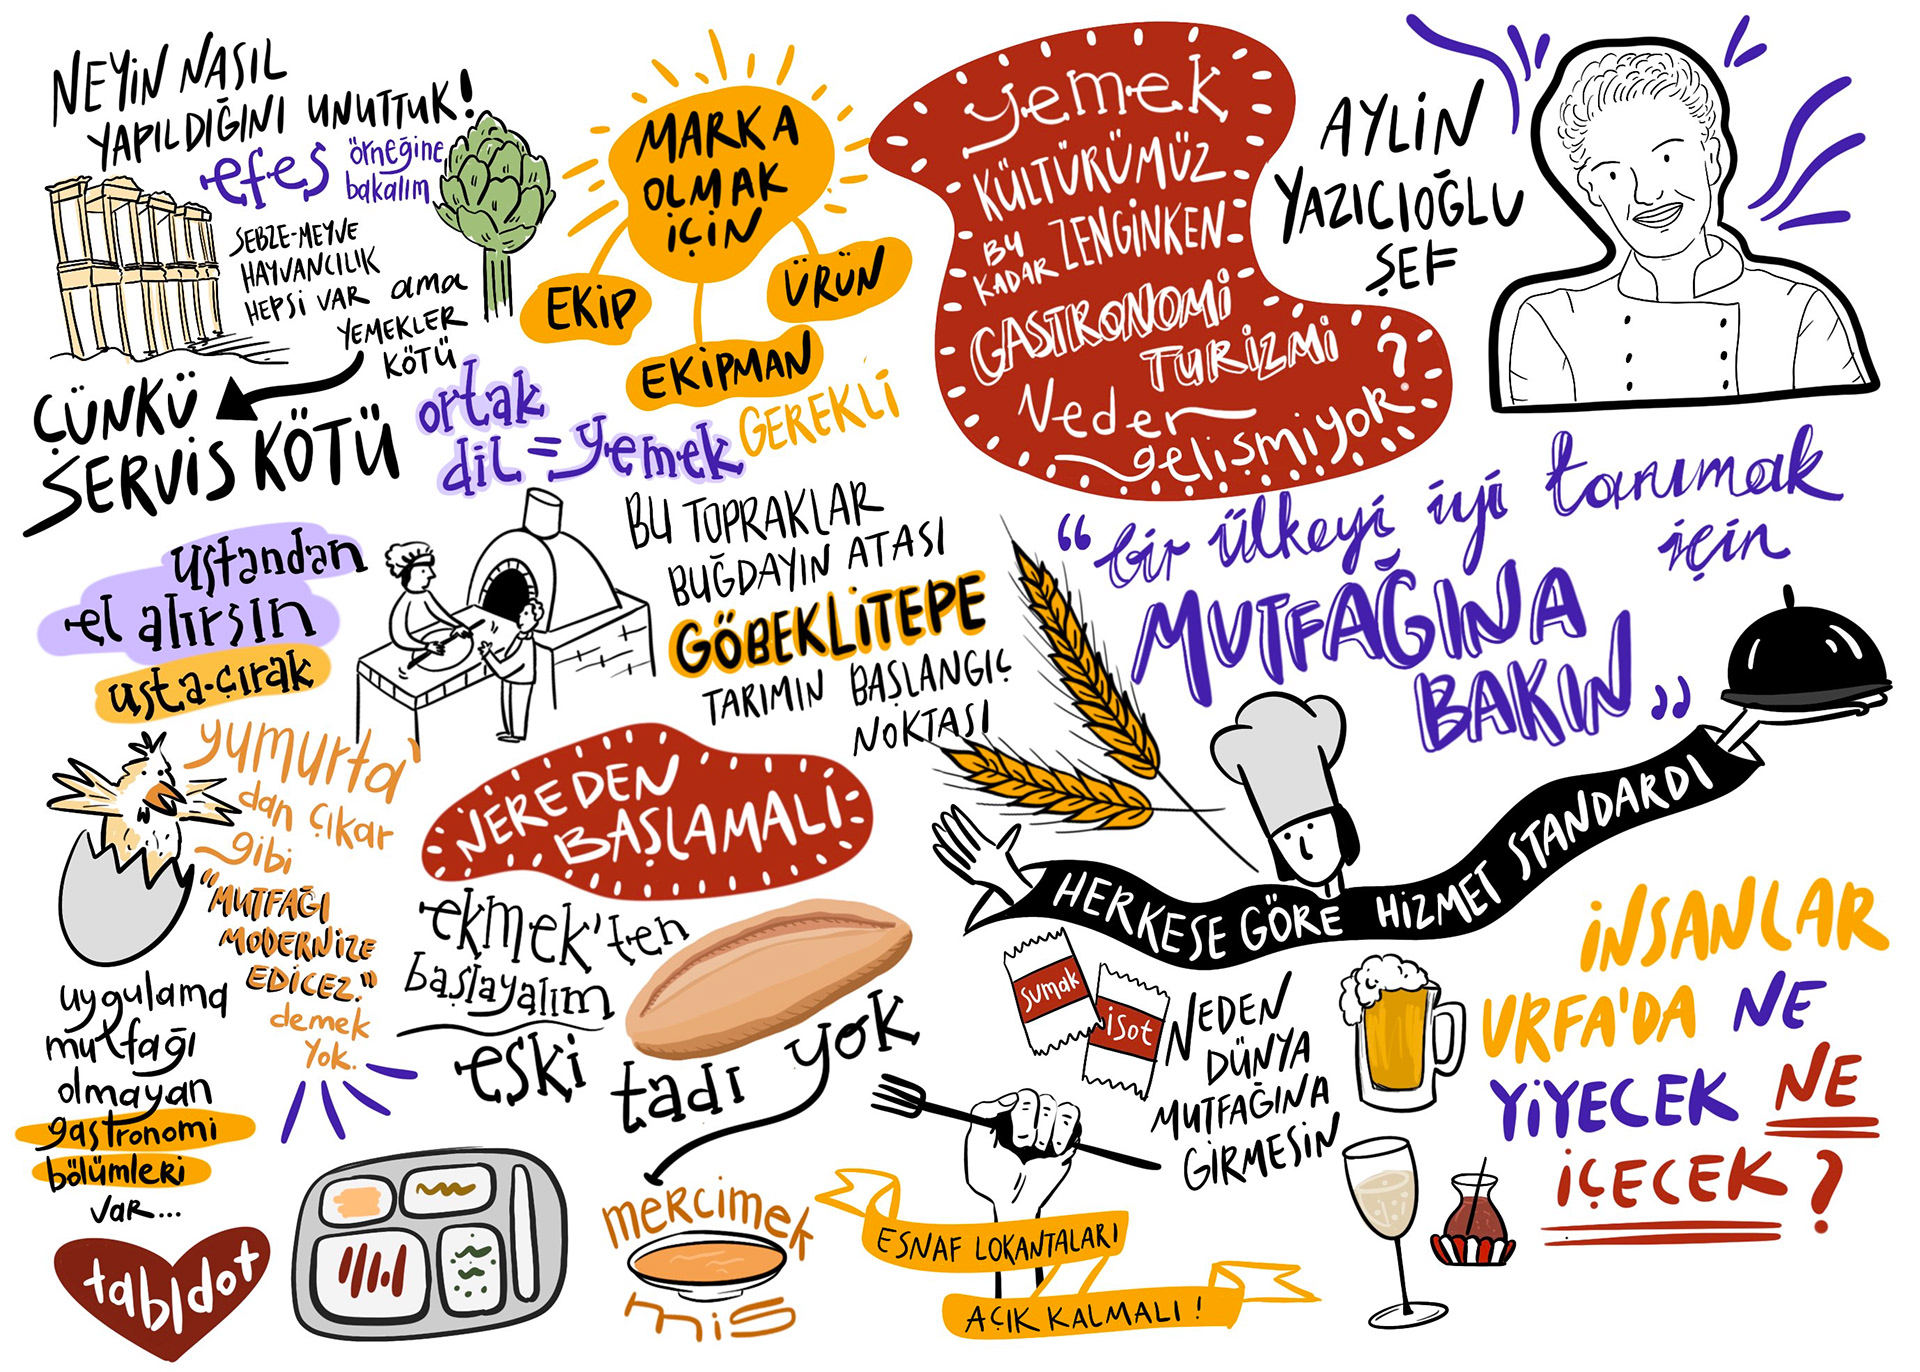 NEYİN NASIL
YAPILDIĞINI UNUTTUK!
efes örneğine
bakalım
SEBZE-MEYVE
HAYVANCILIK
HEPSİ VAR ama
YEMEKLER
KÖTÜ
ÇÜNKÜ
SERVİS KÖTÜ
MARKA
OLMAK
İÇİN
EKİP
EKİPMAN
ÜRÜN
GEREKLİ
ortak
dil = yemek
yemek
KÜLTÜRÜMÜZ
BU
KADAR ZENGİNKEN
GASTRONOMİ
TURİZMİ
Neden
gelişmiyor?
AYLİN
YAZICIOĞLU
ŞEF
ustandan
el alırsın
usta-çırak
BU TOPRAKLAR
BUĞDAYIN ATASI
GÖBEKLİTEPE
TARIMIN BAŞLANGIÇ
NOKTASI
"bir ülkeyi iyi tanımak
için
MUTFAĞINA
BAKIN"
yumurta'
dan çıkar
gibi
"MUTFAĞI
MODERNİZE
EDİCEZ."
demek
yok.
NEREDEN
BAŞLAMALI
ekmek'ten
başlayalım
eski
tadı yok
mercimek
mis
HERKESE GÖRE HİZMET STANDARDI
uygulama
mutfağı
olmayan
gastronomi
bölümleri
var...
tabldot
sumak
isot
NEDEN
DÜNYA
MUTFAĞINA
GİRMESİN
ESNAF LOKANTALARI
AÇIK KALMALI!
İNSANLAR
URFA'DA NE
YİYECEK NE
İÇECEK?